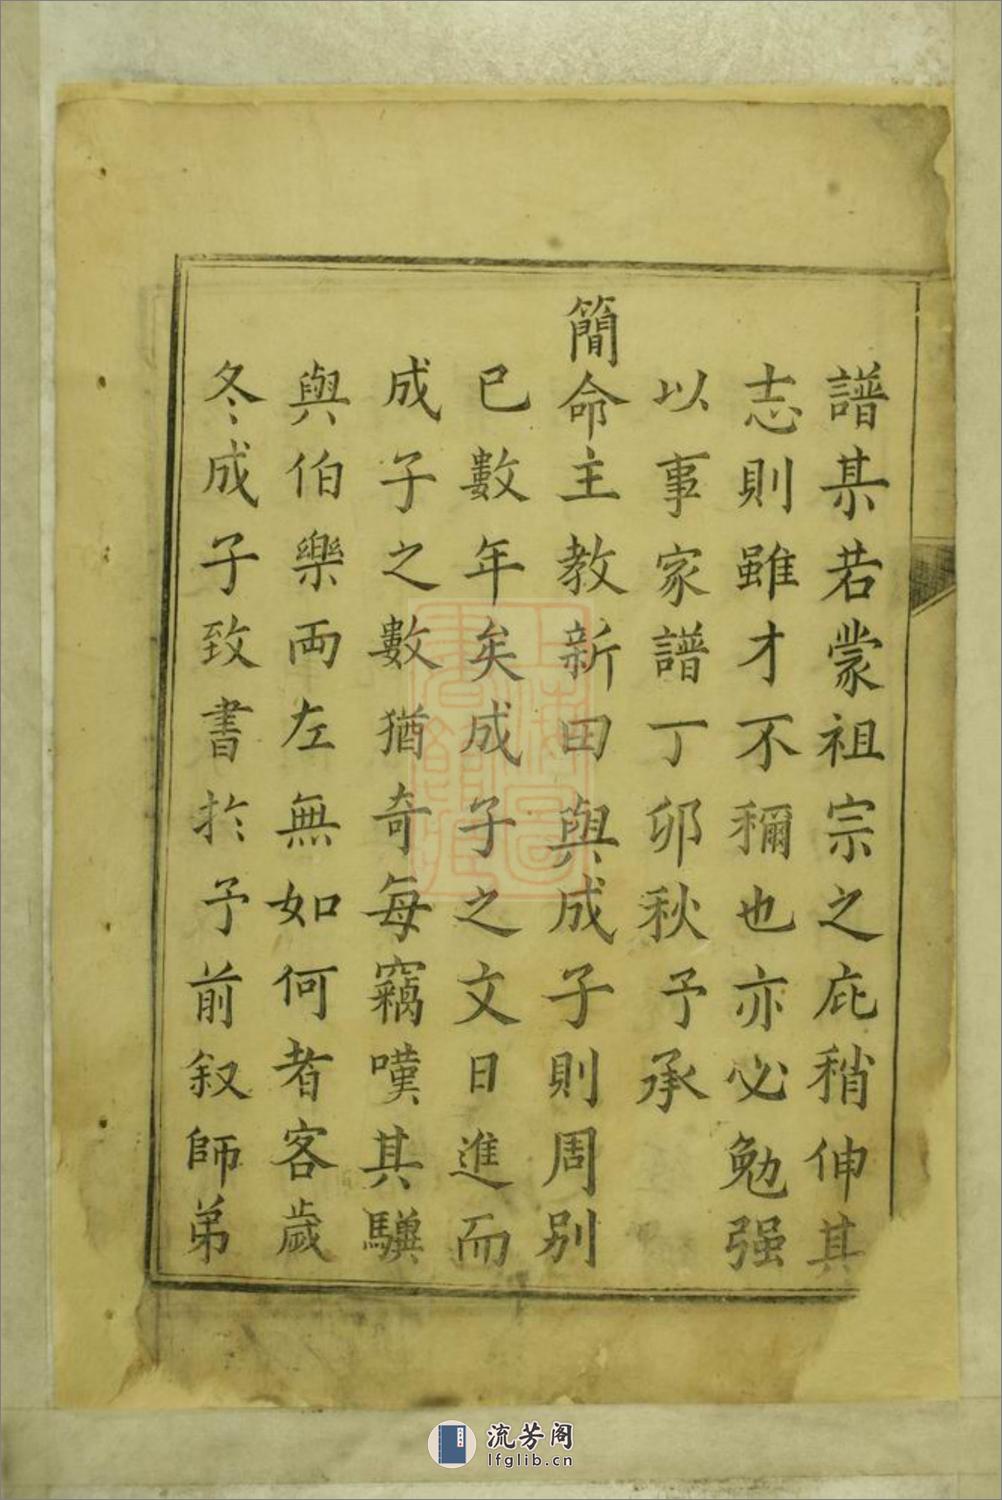 譜某若蒙祖宗之庇稍伸其
志則雖才不穪也亦必勉强
以事家譜丁卯秋予承
簡命主教新田與成子則周别
已數年矣成子之文日進而
成子之數猶奇每竊嘆其驥
與伯樂両左無如何者客歲
冬成子致書於予前叙師弟
流芳阁
lfglib.cn